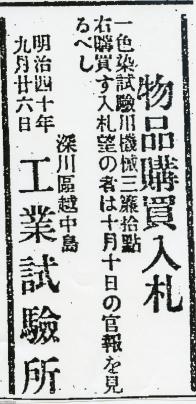 物品購買入札
一色染試驗用機械三簾拾點
右購買す入札望の者は十月十日の官報を見
るべし
明治四十年
九月廿六日
深川區越中島
工業試驗所